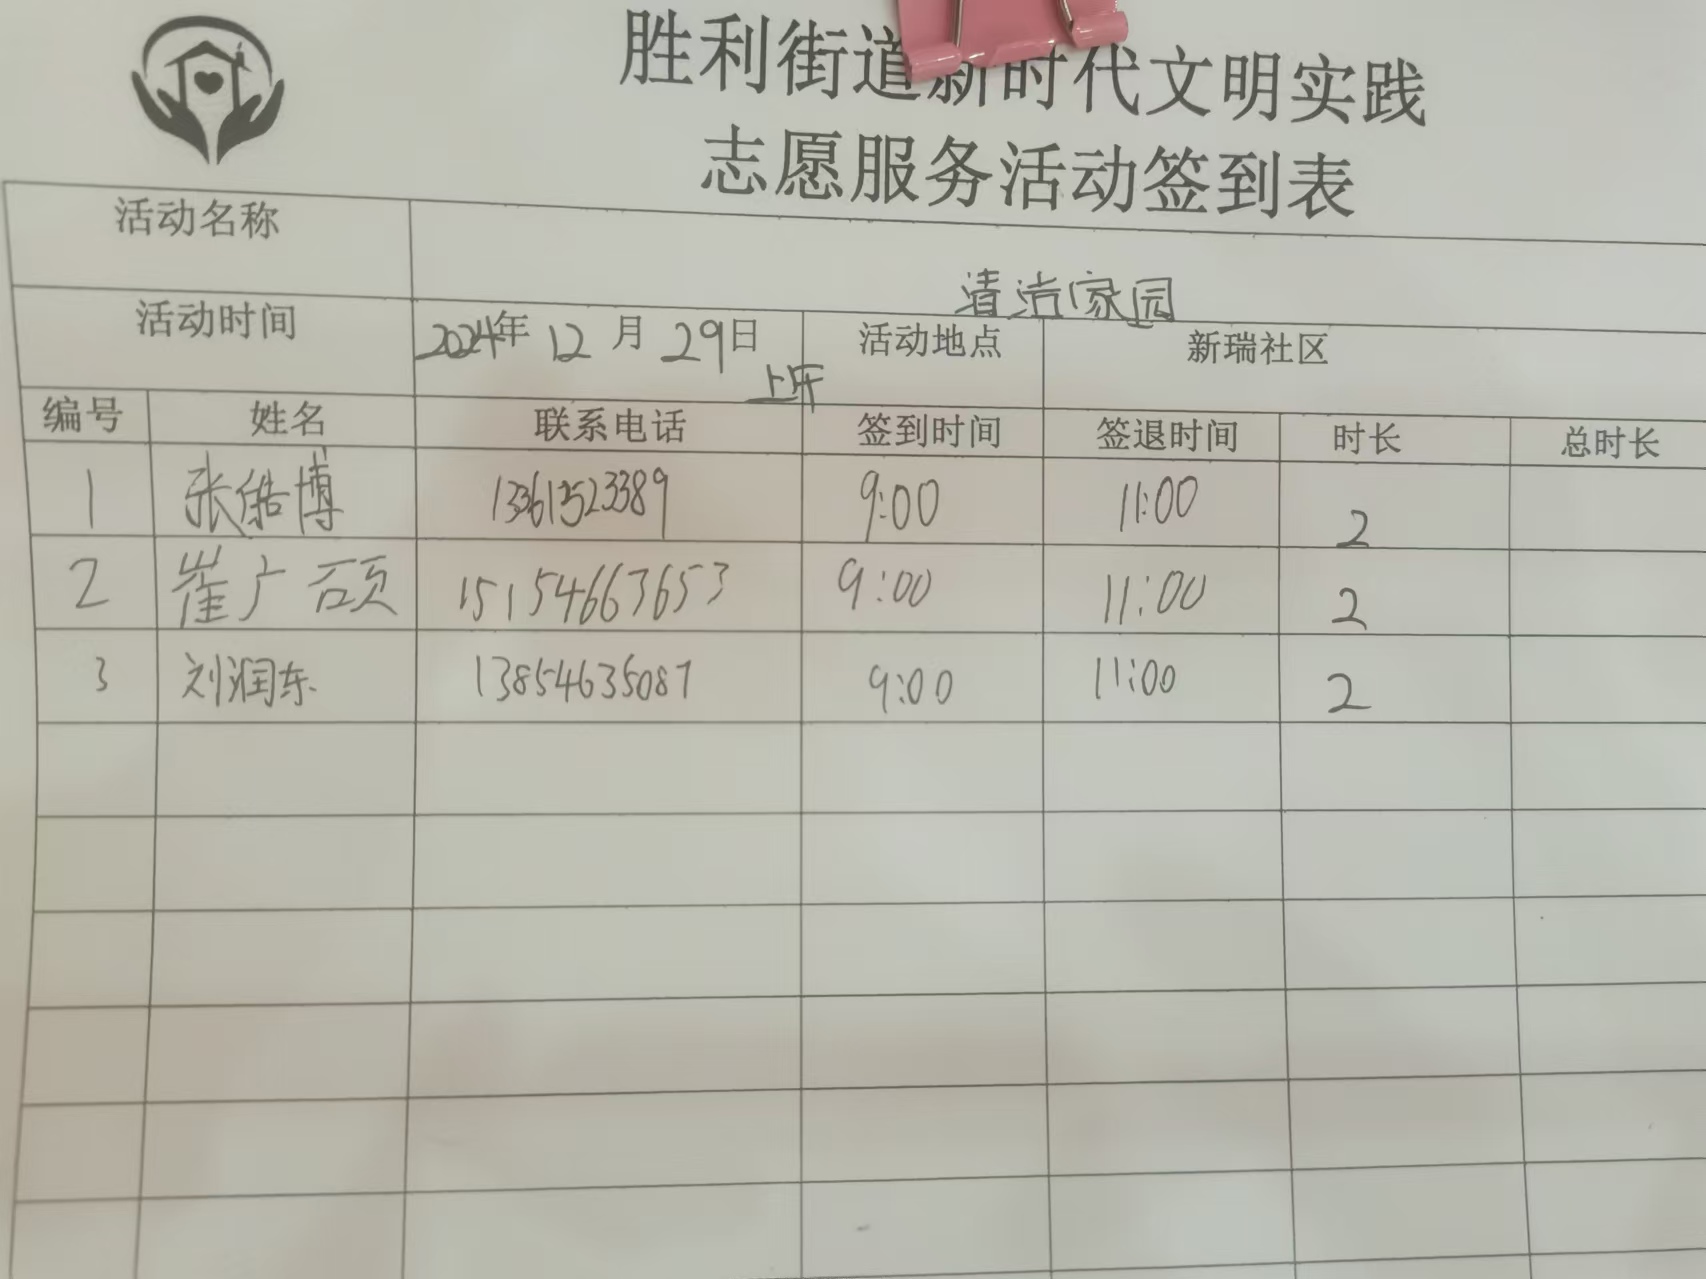 胜利街道新时代文明实践
志愿服务活动签到表
活动名称 清洁家园
活动时间 2024年 12 月 29日 上午 活动地点 新瑞社区
编号 姓名 联系电话 签到时间 签退时间 时长 总时长
1 张皓博 13361523389 9:00 11:00 2
2 崔广硕 15154663653 9:00 11:00 2
3 刘润东 13854635087 9:00 11:00 2